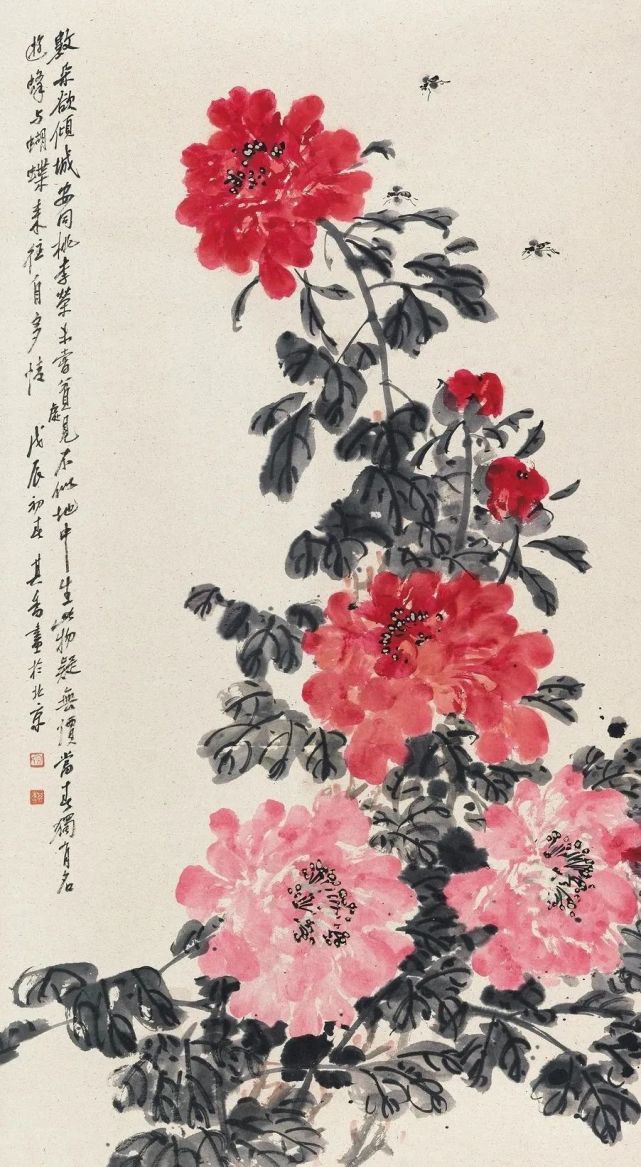 數朵欲傾城安同桃李榮未嘗貧處見不似地中生此物疑無價當春獨有名
遊蜂与蝴蝶来往自多情 戊辰初春 其香畫於北京